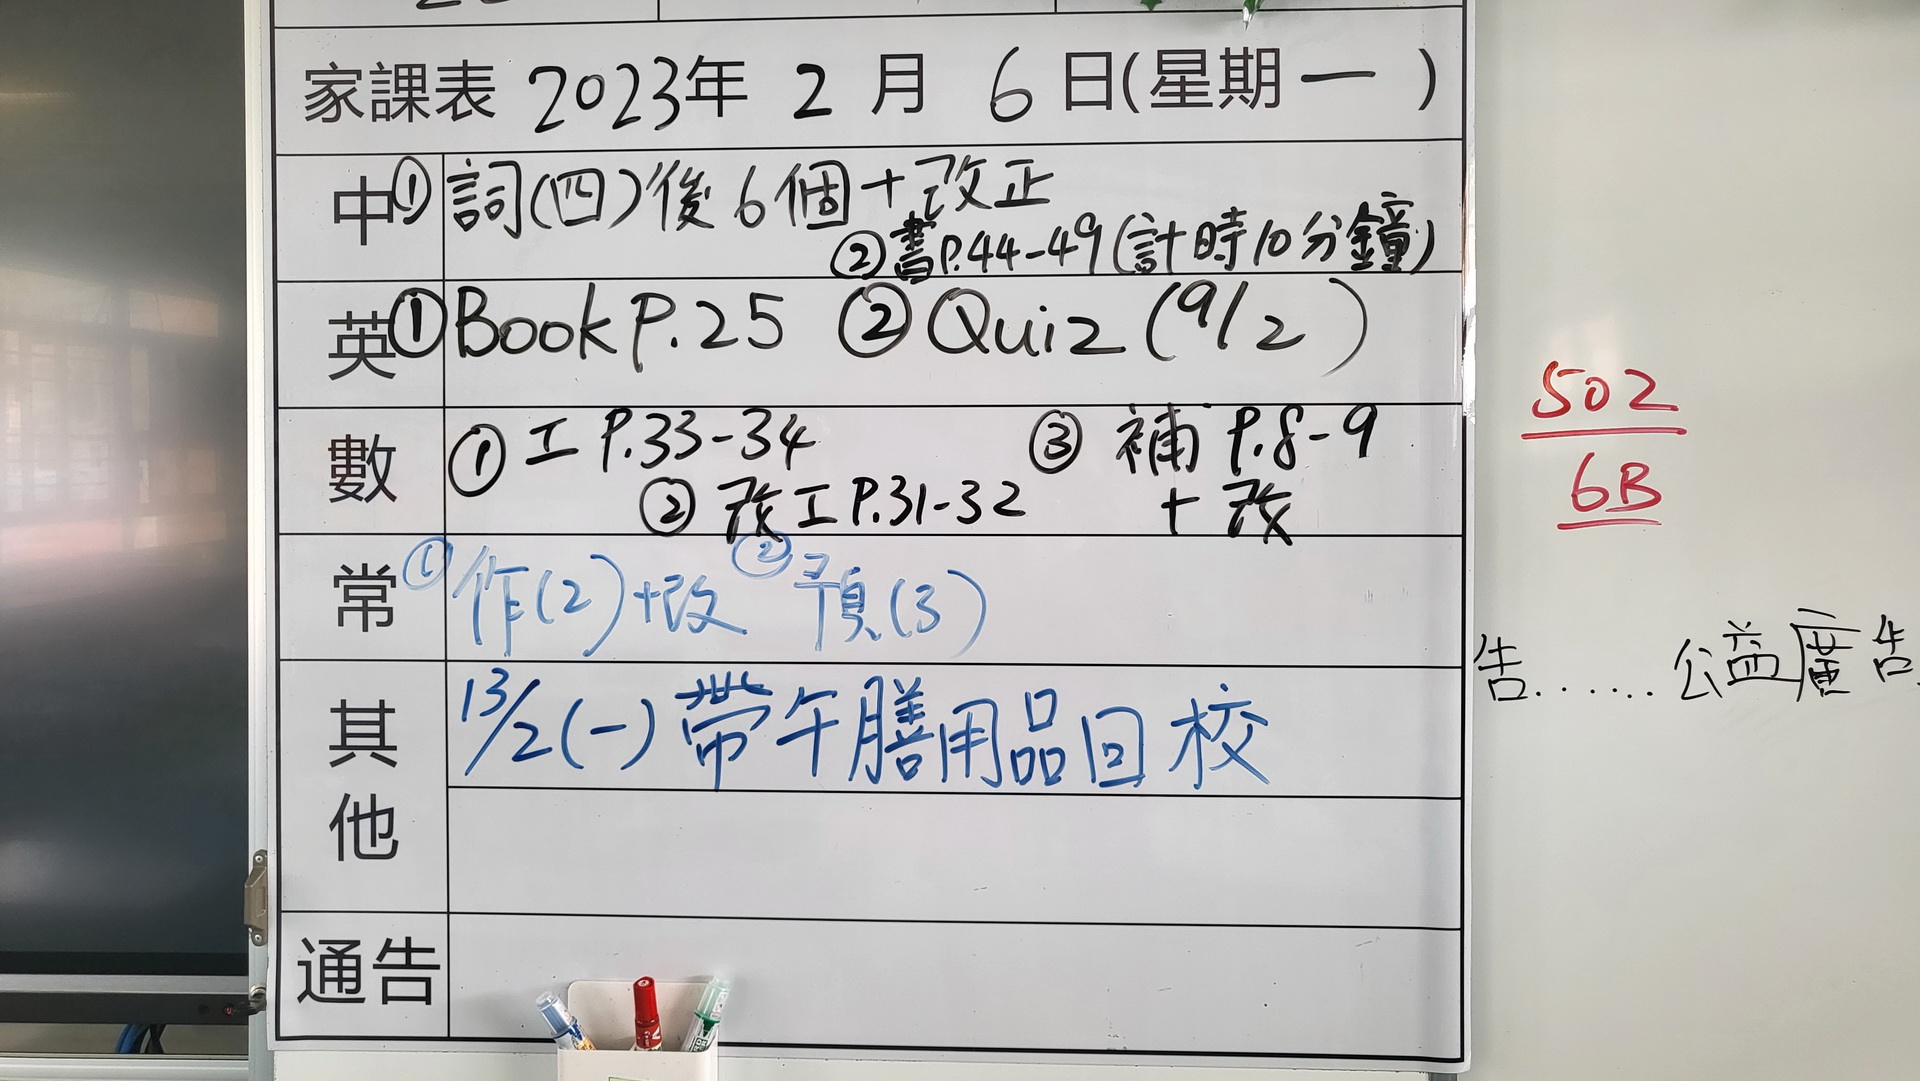 家課表 2023年 2 月 6 日(星期一)
中 ①詞(四)後6個+改正
②書P.44-49(計時10分鐘)
英 ①Book P.25 ②Quiz (9/2)
數 ①工 P.33-34 ③補 P.8-9
②改工P.31-32 +改
常 ①作(2)+改 ②預(3)
其他 13/2(一)帶午膳用品回校
通告
502
6B
告......公益廣告